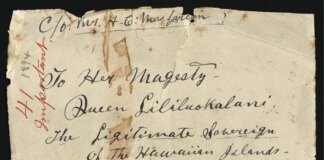 C/o. Mrs. H. E. Macfarlane
41
1894
Important.
To Her Magesty-
Queen Liliuokalani.
The Legitimate Sovereign
of the Hawaiian Islands-